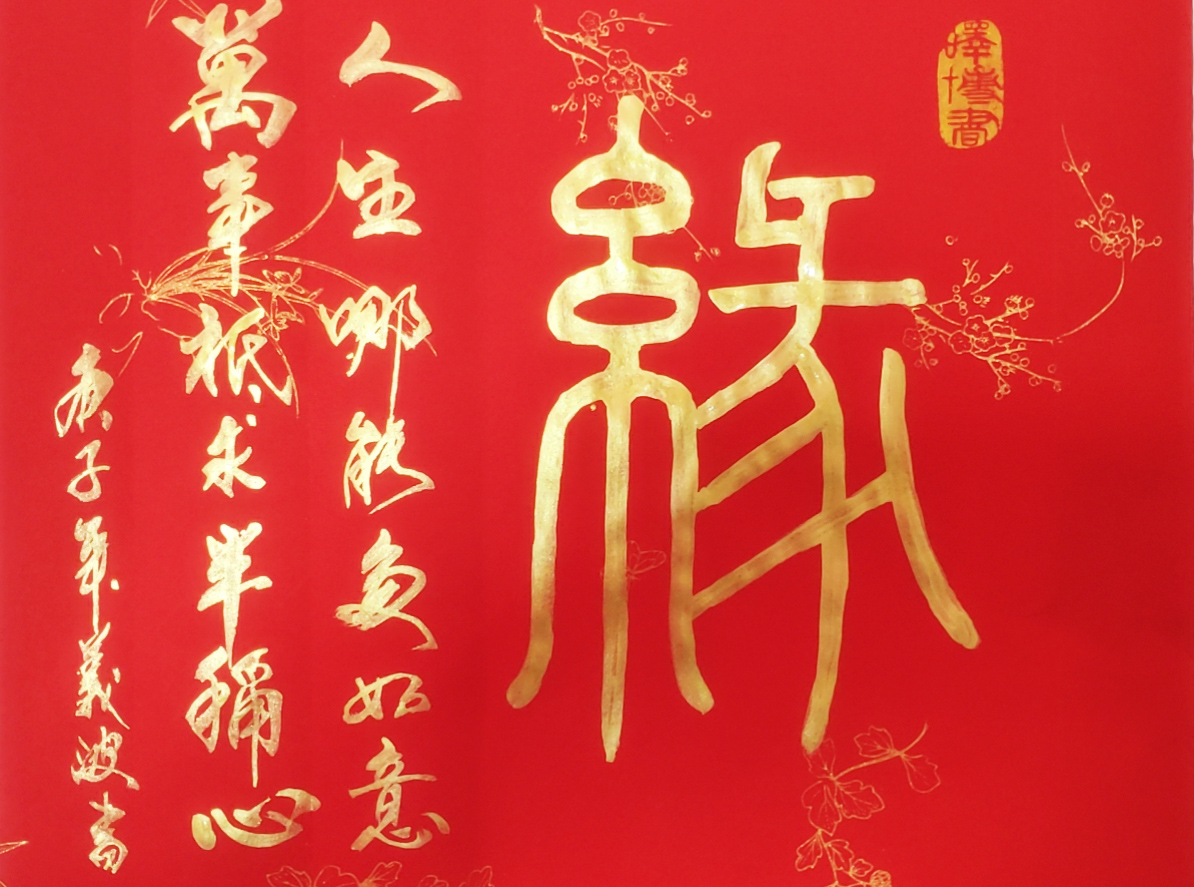 緣
人生哪能多如意
萬事祇求半稱心
庚子年義波書